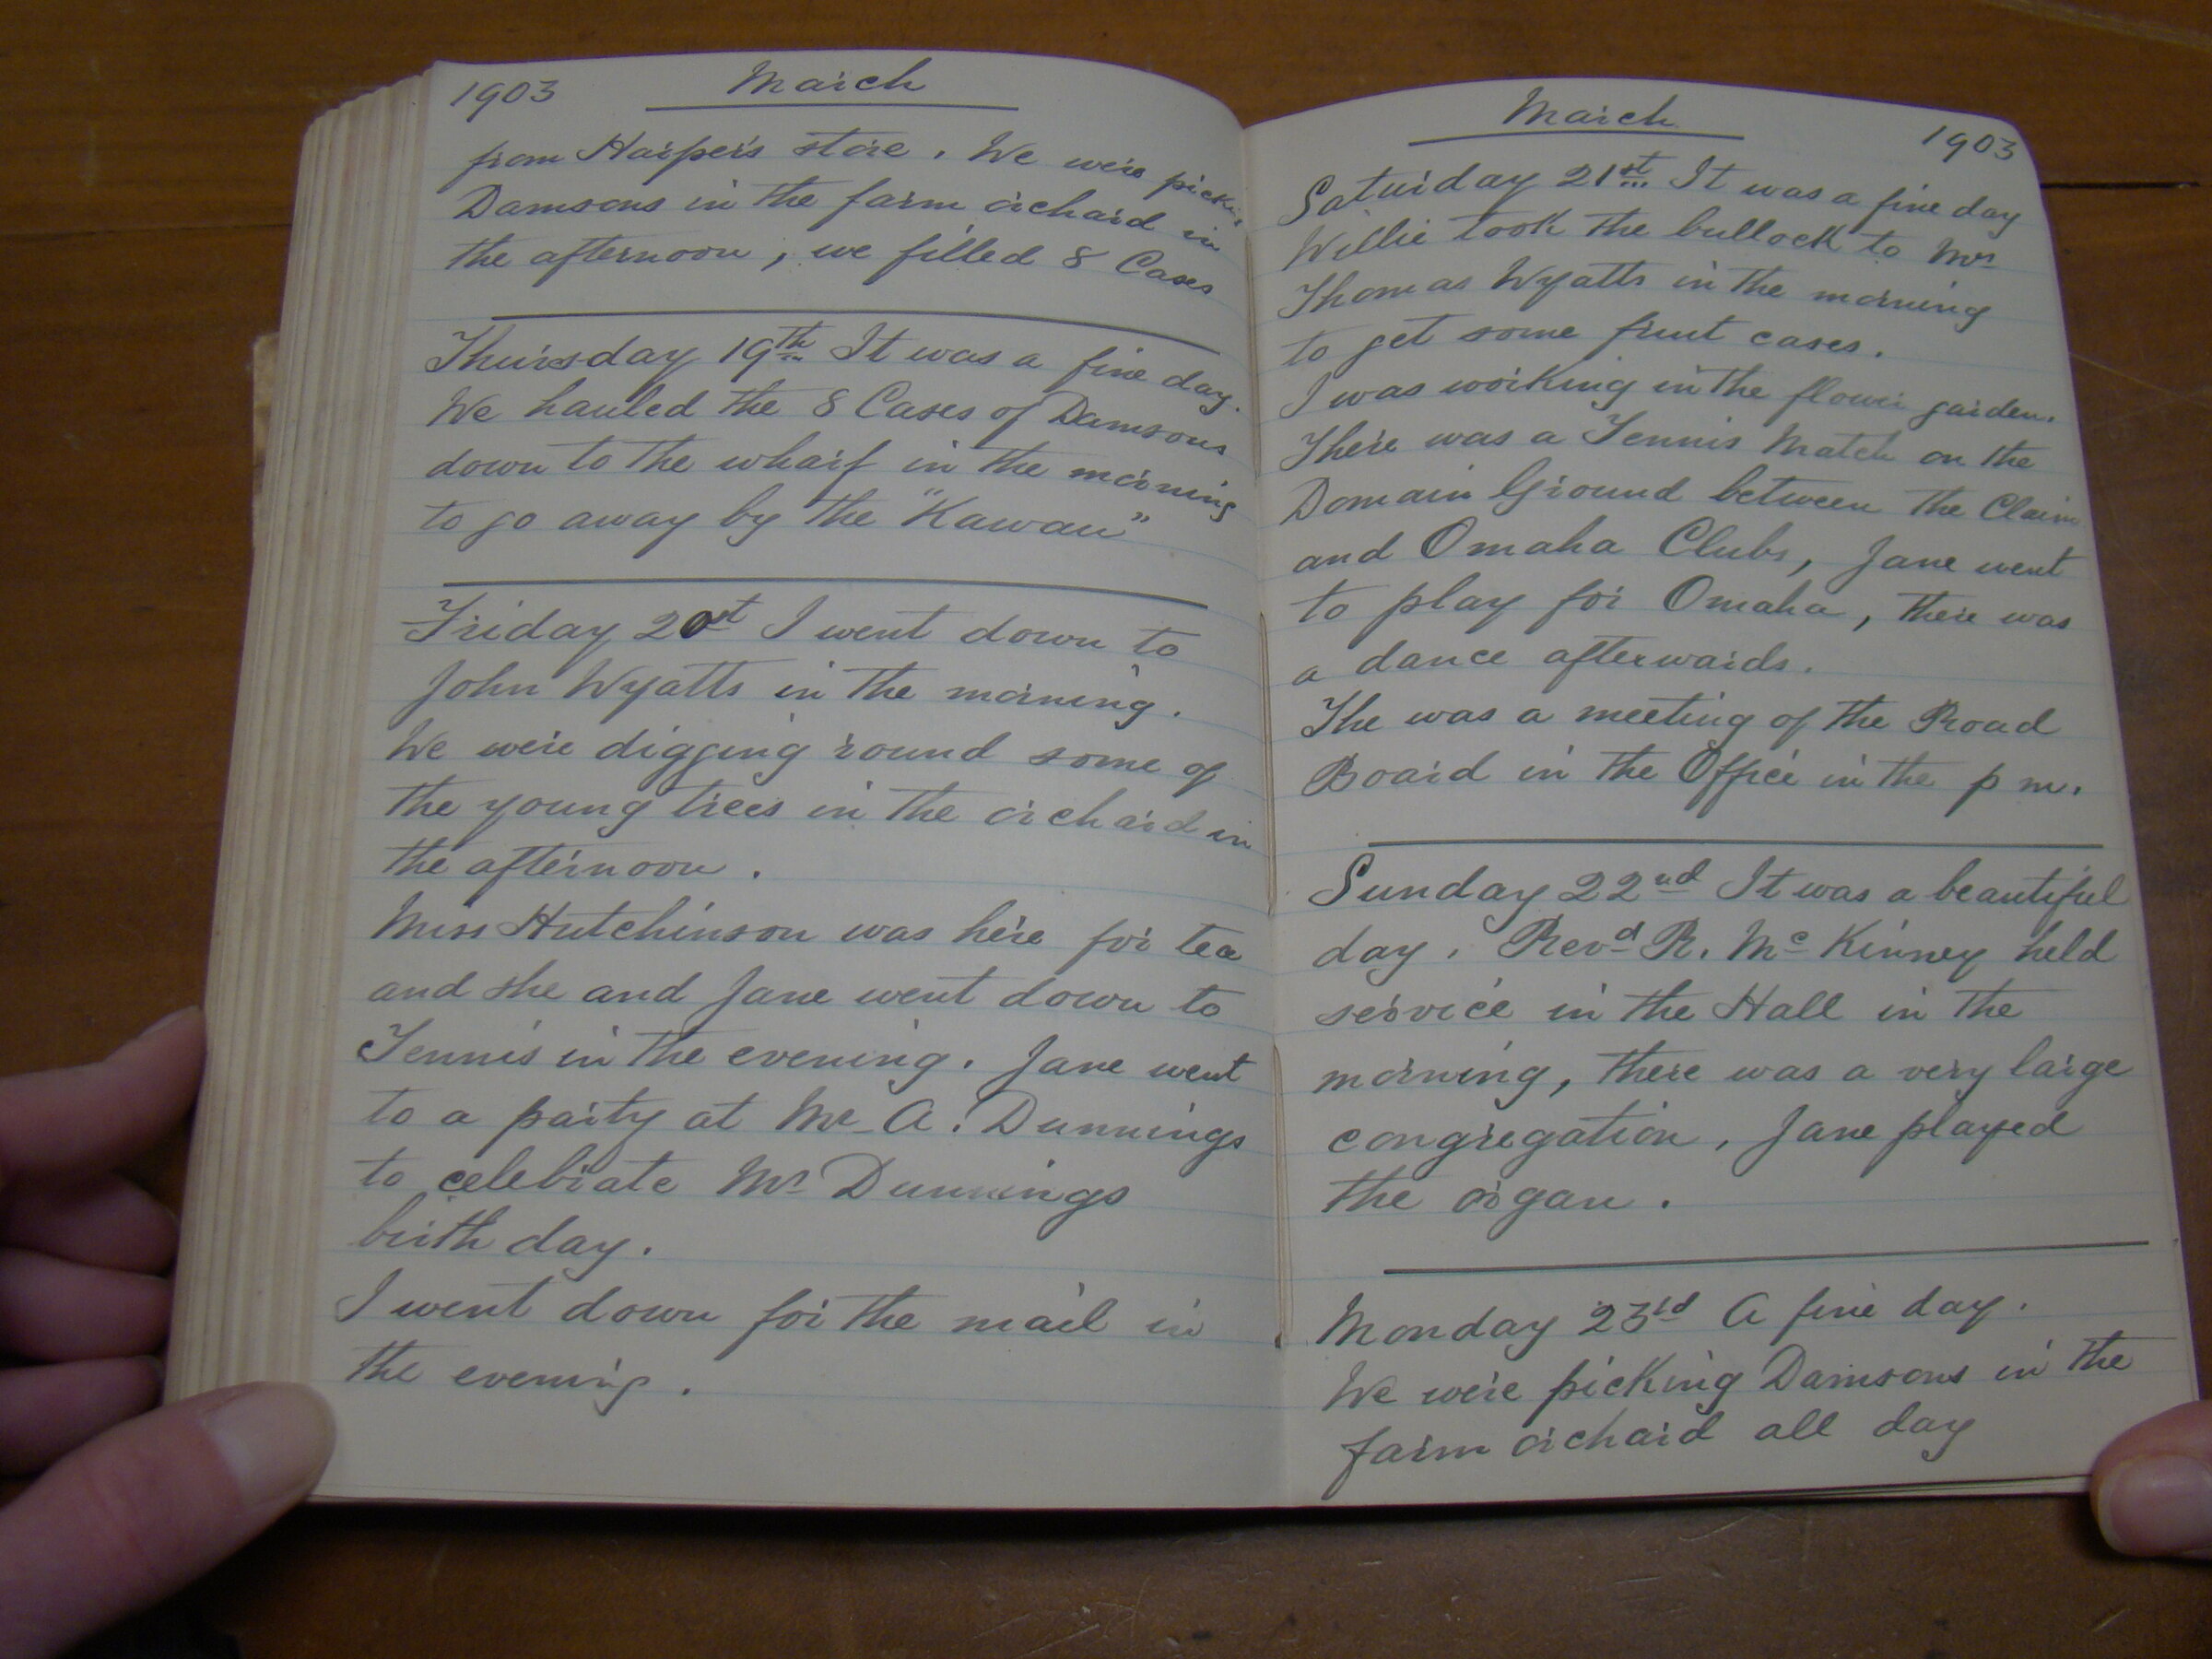 1903 March
from Harper's store. We were picking
Damsons in the farm orchard in
the afternoon, we filled 8 Cases
Thursday 19th It was a fine day.
We hauled the 8 Cases of Damsons
down to the wharf in the morning
to go away by the "Kawau"
Friday 20st I went down to
John Wyatts in the morning.
We were digging round some of
the young trees in the orchard in
the afternoon.
Miss Hutchinson was here for tea
and she and Jane went down to
Tennis in the evening. Jane went
to a party at Mr A. Dunnings
to celebrate Mr Dunnings
birth day.
I went down for the mail in
the evening.
March 1903
Saturday 21st It was a fine day
Willie took the bullock to Mr
Thomas Wyatts in the morning
to get some fruit cases.
I was working in the flower garden.
There was a Tennis Match on the
Domain Ground between the
and Omaha Clubs, Jane went
to play for Omaha, there was
a dance afterwards.
The was a meeting of the Road
Board in the Office in the p m.
Sunday 22nd It was a beautiful
day. Revd R. Mc Kinney held
service in the Hall in the
morning, there was a very large
congregation, Jane played
the organ.
Monday 23rd A fine day.
We were picking Damsons in the
farm orchard all day